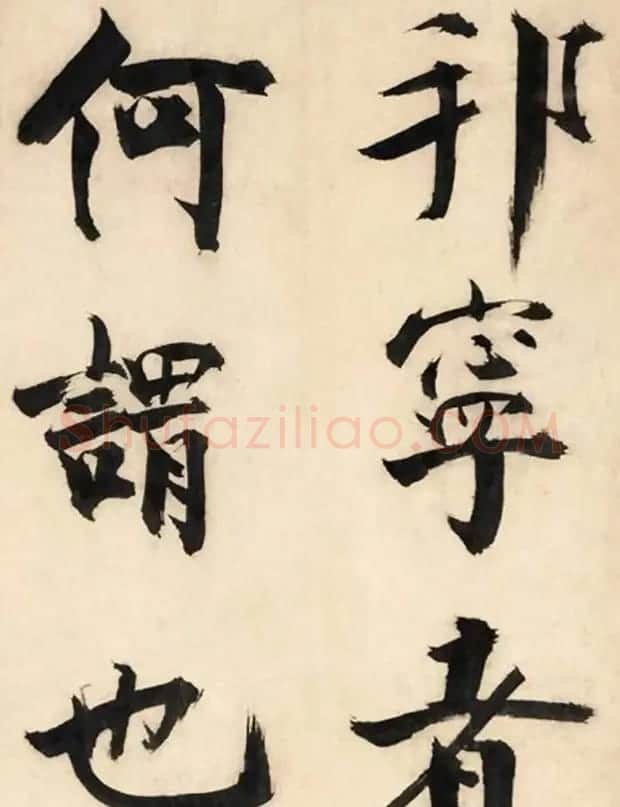 邦寧者
何謂也
Shufaziliao.COM